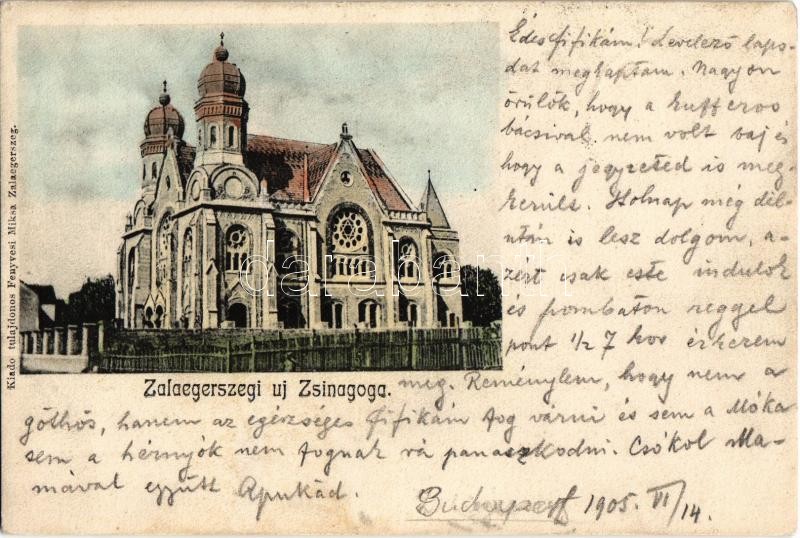 Édes Fifikám! Levelező lapo-
dat megkaptam. Nagyon
örülök, hogy a kufferos
bácsival nem volt baj és
hogy a jegyzeted is meg-
került. Holnap még dél-
után is lesz dolgom, a-
zért csak este indulok
és szombaton reggel
pont 1/2 7 kor érkezem
meg. Reménylem, hogy nem a
göthös, hanem az egészséges Fifikám fog várni és sem a Móka
sem a hérnyók nem fognak rá panaszkodni. Csókol Ma-
mával együtt Apukád.
Budapest 1905. VI/14.
Zalaegerszegi uj Zsinagoga.
Kiadó tulajdonos Fenyvesi Miksa Zalaegerszeg.
darabanth